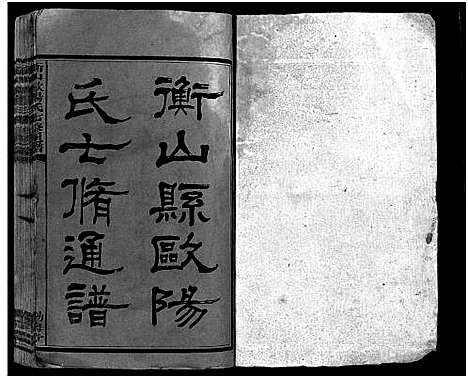 衡山縣歐陽
氏士脩通譜